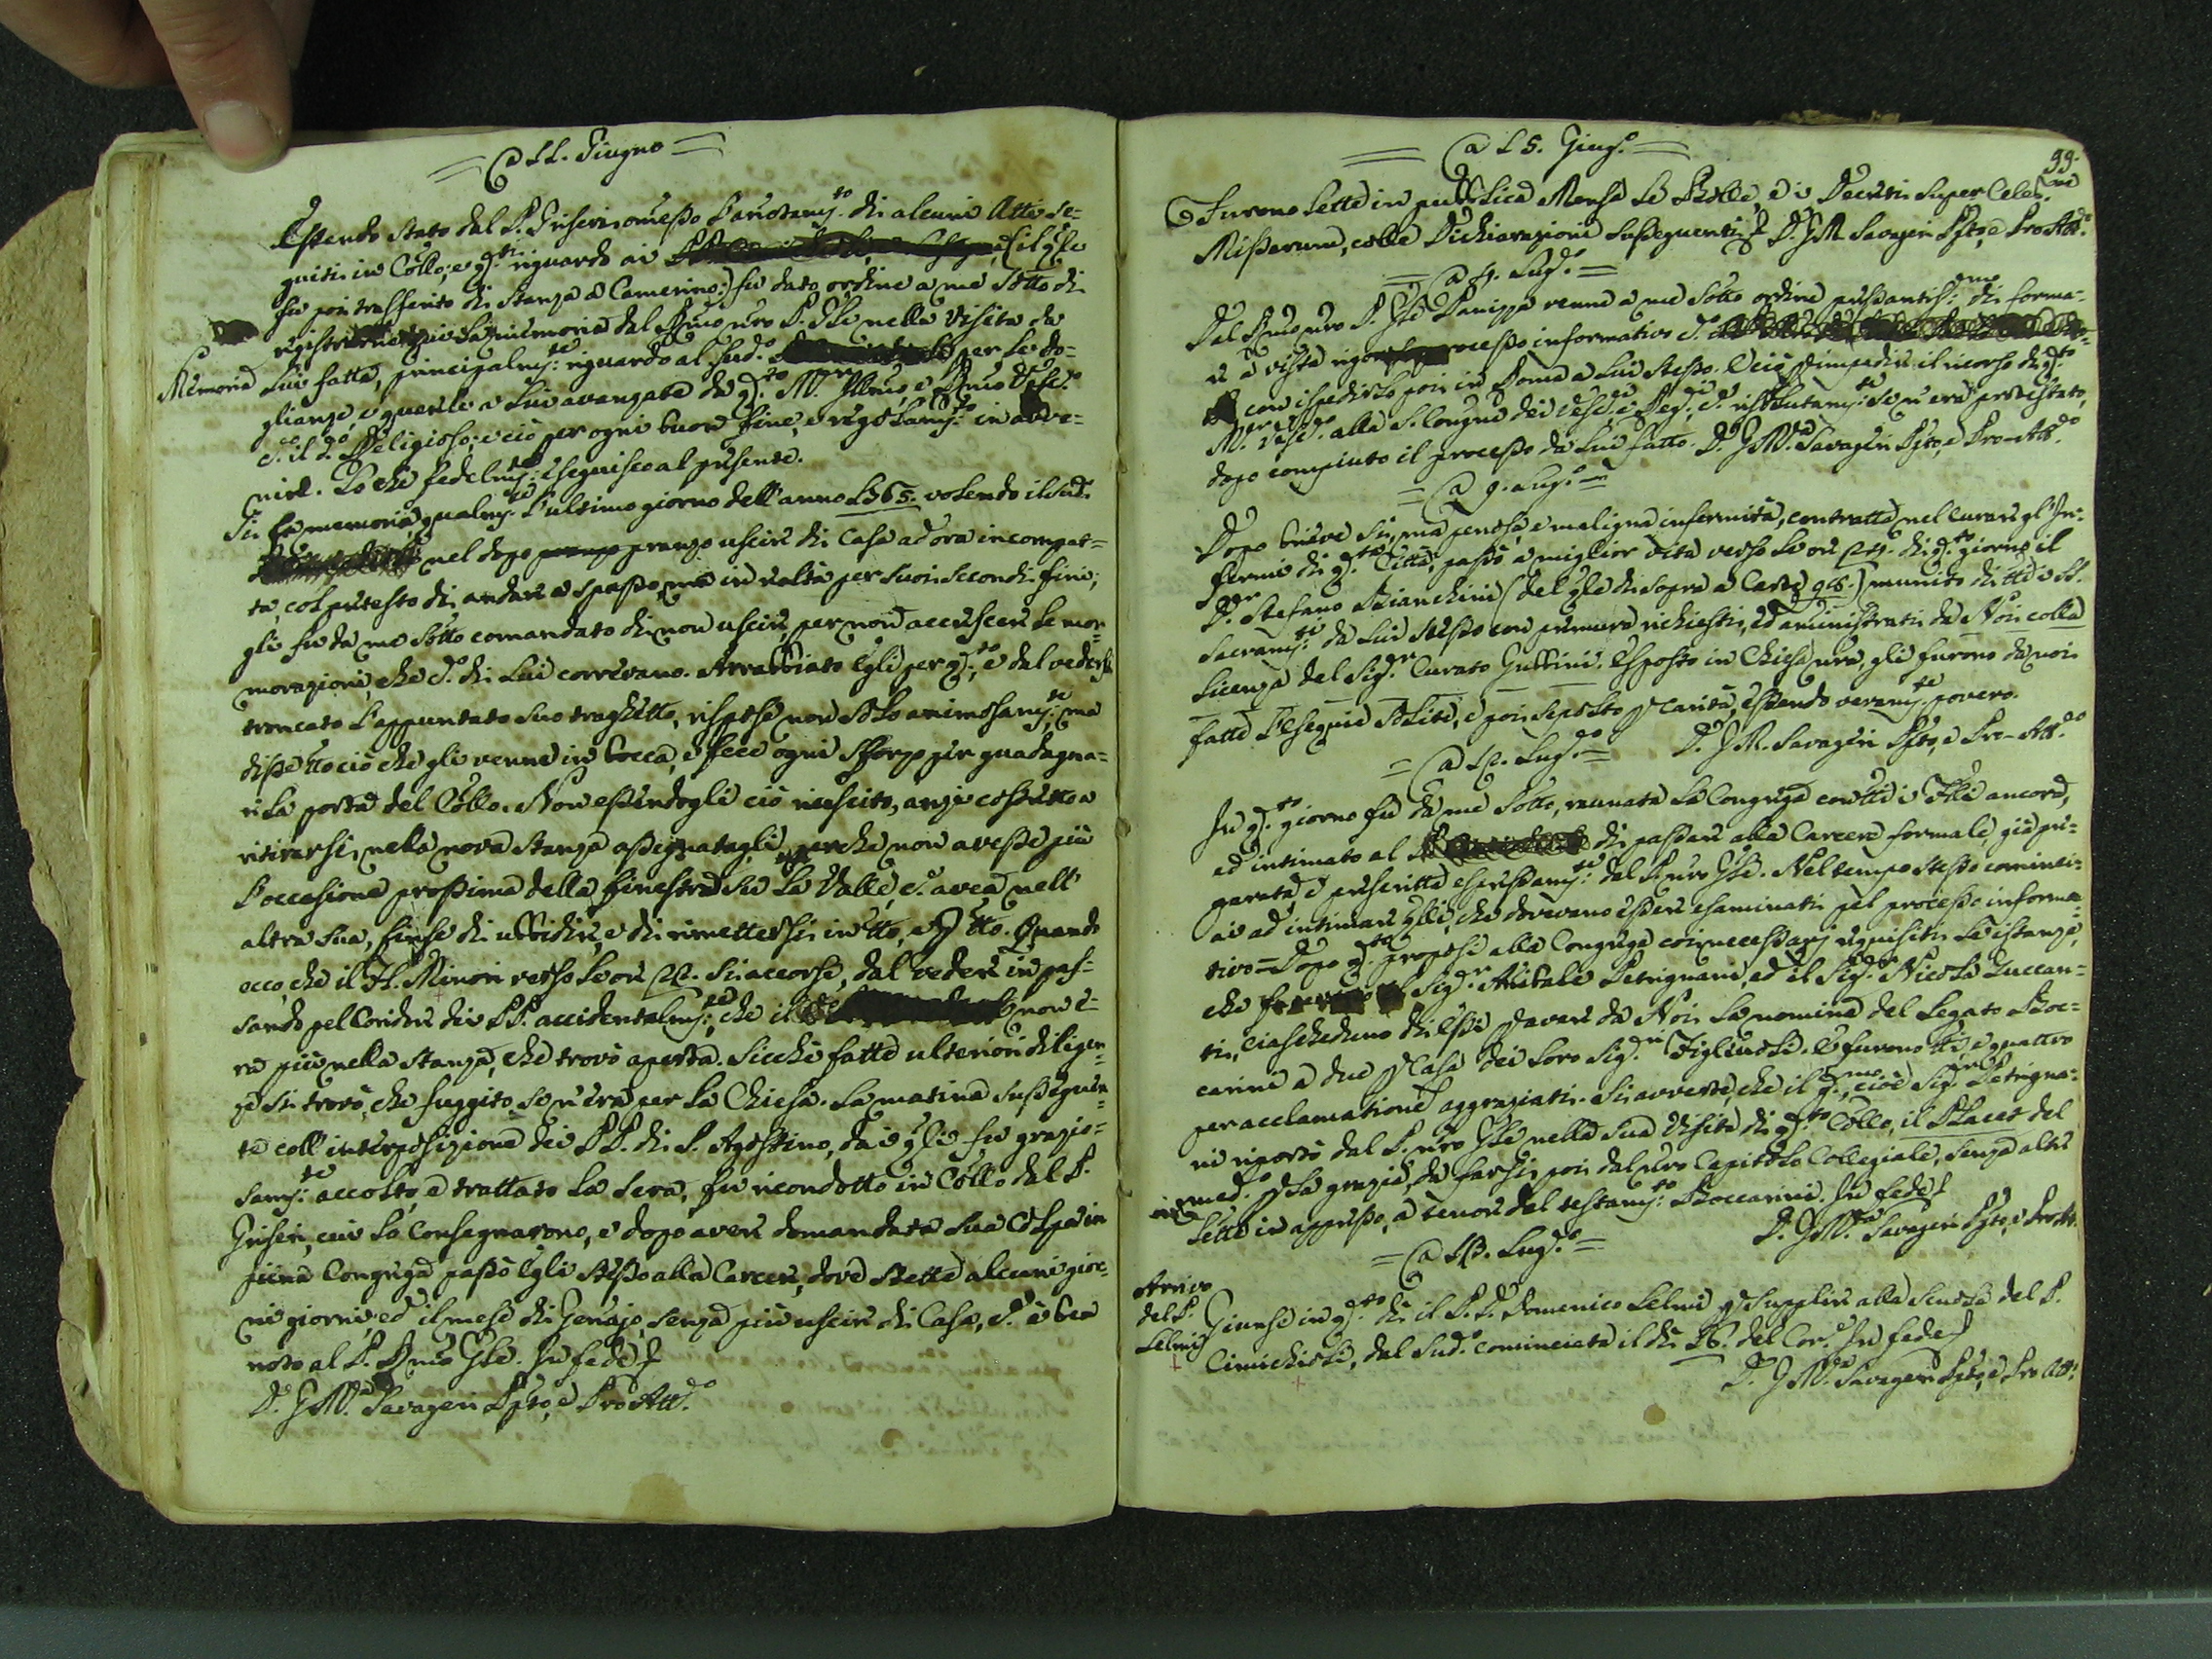 = A 11. Giugno =
Essendo stato dal P. Griseri omesso l'annotamto. di alcuni Atti se=
guiti in Collo; e q.ti riguardo ai (il qle
fu poi trasferito di stanza a Camerino:) fu dato ordine a me sotto di
registrarne qui la memoria dal Rmo nro P. Gle nella Visita da
Memoria
Lui fatta, principalmte: riguardo al sud.o per le do=
glianze, e querele a Lui avanzate da q.to M.r Illmo, e Rmo Vesc.o
c.o il d.o Religioso; e ciò per ogni buon fine, e regolamto: in avve=
nire. Lo che fedelmte: eseguisco al presente.
Si fa memoria, qualmte. l'ultimo giorno dell'anno 1765. volendo il sud.
nel dopo pranzo uscir di Casa ad ora incompat=
ta, col pretesto di andare a spasso, ma in realtà per suoi secondi fini,
gli fu da me sotto comandato di non uscire, per non accrescere le mor=
morazioni, che c.o di Lui correvano. Arrabbiato Egli per q.to, e dal vedersi
troncato l'appuntato suo traghetto, rispose non solo animosamte: ma
disse tto ciò che gli venne in bocca, e fece ogni sforzo per guadagna=
re la porta del Collo. Non essendogli ciò riuscito, anzi costretto a
ritirarsi nella nova Stanza assegnatagli, perchè non avesse più
l'occasione prossima della finestra su la Valle, c.e avea nell'
altra sua, finse di ubbidire, e di rimettersi in tto, e p tto. Quando
ecco, che il Fl. Minori verso le ore 22. si accorse, dal vedere in pas=
sando pel Coridore dei PP. accidentalmte:, che il non e=
ra più nella Stanza, che trovò aperta. Sicchè fatte ulteriori diligen=
ze si trovò, che fuggito se n'era per la Chiesa. La matina susseguen=
te coll'interposizione dei PP. di S. Agostino, dai qli fu grazio=
samte: accolto, e trattato la sera, fu ricondotto in Collo dal P.
Griseri, cui lo consegnarono, e dopo aver domandata sua Colpa in
piena Congrega passò Egli stesso alla Carcere, dove stette alcuni gior=
ni giorni, ed il mese di Genajo, senza più uscir di Casa, c.e è ben
noto al P. Rmo Gle. In fede
D. G. M.a Savageri Ppto, e Pro Att.o
99.
= A 15. Giug.o =
Furono lette in pubblica Mensa le Bolle, e i Decreti super Celeb.ne
Missarum, colle Dichiarazioni susseguenti D. G. M. Savageri Ppto, e Pro Att.o
= A 4. Lug.o =
Dal Rmo nro P. Gle Manippa venne a me sotto ordine pressantis.mo: di forma=
re a vista rigo processo informativo c.o
con ispedirlo poi in Roma a Lui stesso. E ciò p impedire il ricorso di q.to
M.r Vesc.o alla S. Congne dei Vesc.i e Reg.i, c.e risolutamte: se n'era protestato,
dopo compiuto il processo da Lui fatto. D. G. M.a Savageri Ppto, e Pro-Att.o
= A 9. Lug.o =
Dopo brieve sì, ma penosa, e maligna infermità, contratta nel curare gl'In=
fermi di q.ta Città, passò a miglior vita verso le ore 24. di q.to giorno il
D.r Stefano Bianchini (del qle di sopra a Carte 98.) munito di tti i SS.
Sacramti: da Lui stesso con premura richiesti, ed aministrati da Noi colla
Licenza del Sig.r Curato Guffini. Esposto in Chiesa nra, gli furono da noi
fatte l'Esequie solite, e poi sepolto p carità, essendo veramte. povero.
D. G. M. Savageri Ppto, e Pro-Att.o
= A 12. Lug.o =
In q.to giorno fu da me sotto, raunata la Congrega con tti i Flli ancora,
ed intimato al di passare alla Carcere formale, già pre=
parata, e prescritta espressamte: dal R. nro Gle. Nel tempo stesso cominci=
ai ad intimare qlli, che dovevano essere esaminati pel processo informa=
tivo = Dopo q.to proposi alla Congrega coi necessarj requisiti le istanze,
che Sig.r Anibale Petrignani, ed il Sig.r Nicola Zuccan=
ti, ciascheduno di essi p avere da Noi la nomina del Legato Boc=
carini a due p Casa dei loro Sig.ri Figliuoli. E furono tti e quattro
per acclamatione aggraziati. Si avverte, che il p.mo, cioè Sig.r Petrigna=
ni riportò dal P. nro Gle nella sua Visita di q.to Collo, il Placet del
med.o p la grazia, da farsi poi dal nro Capitolo Collegiale, senza altre
Lette in appresso, a tenore del testamto: Boccarini. In fede
D. G. M.a Savageri Ppto, e Pro Att.
= A 13. Lug.o =
Arrivo
del P.
Selmi
Giunse in q.to dì il P. D. Domenico Selmi p supplire alla Scuola del P.
Cimichioli, dal sud.o cominciata il dì 16. del Cor.e In fede
D. G. M.a Savageri Ppto, e Pro Att.